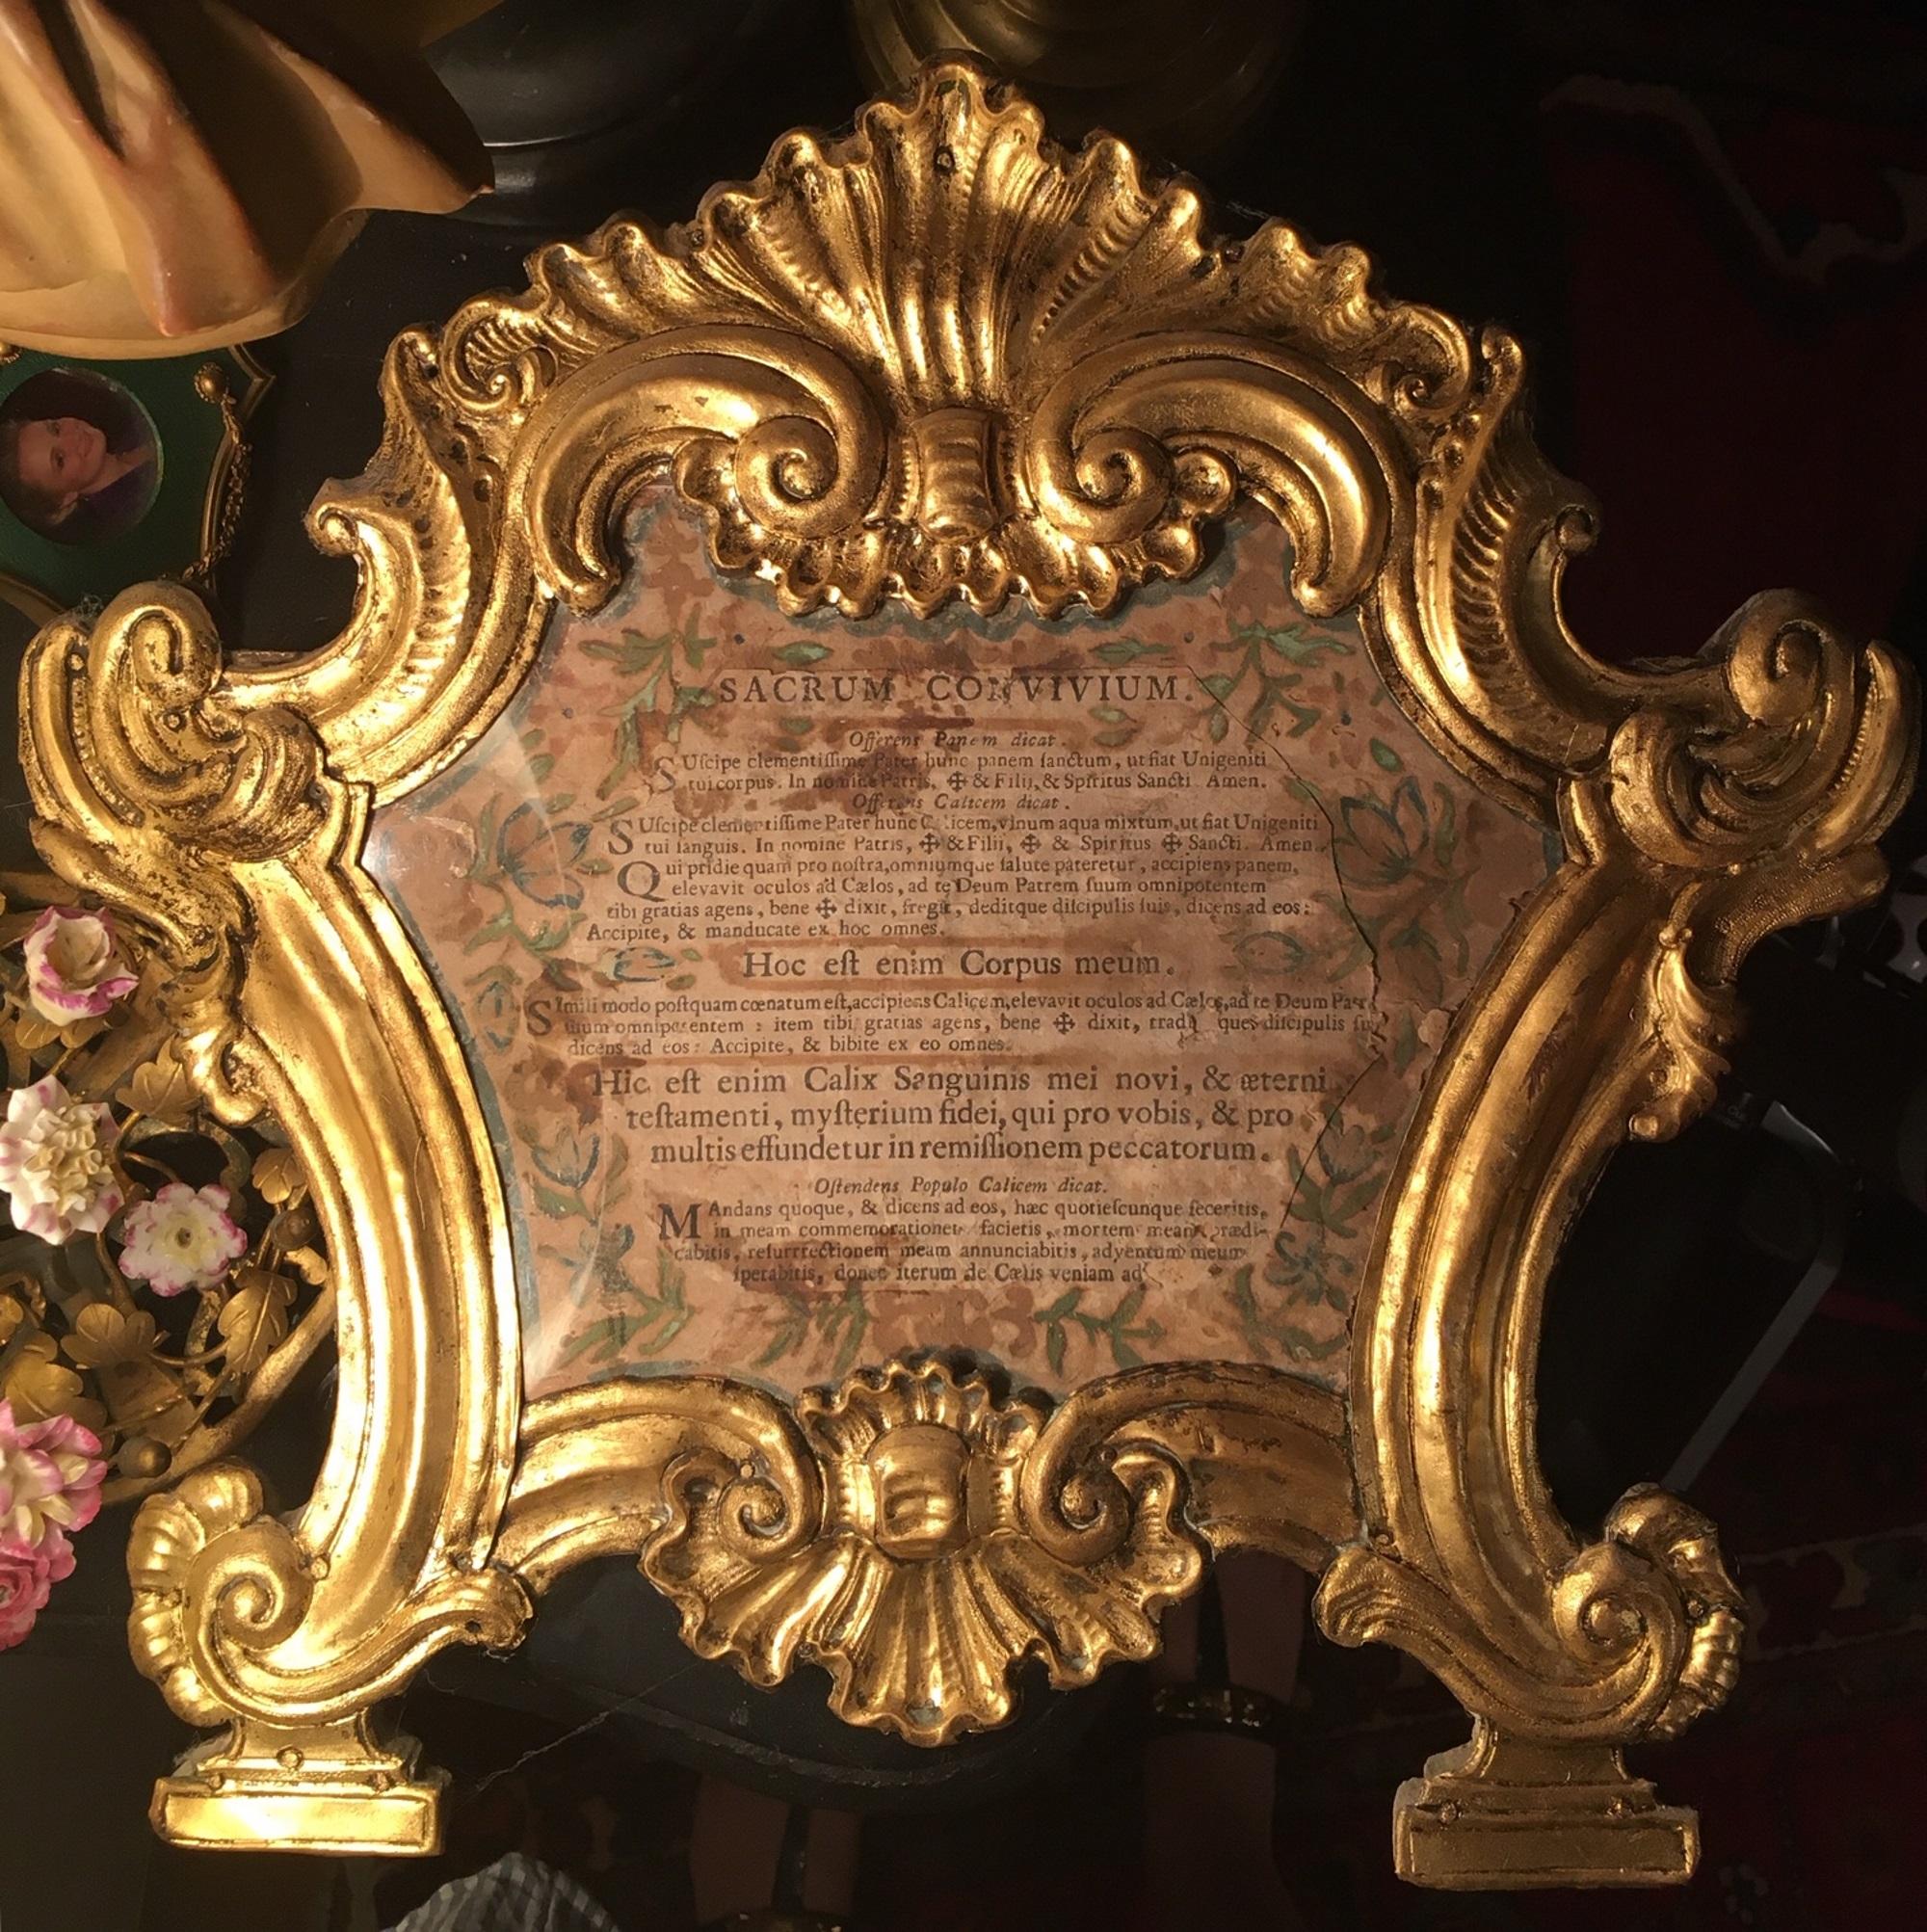 SACRUM CONVIVIUM.
Offerens Panem dicat.
SUſcipe clementiſſime Pater hunc panem ſanctum, ut fiat Unigeniti
tui corpus. In nomine Patris, ✠ & Filij, & Spiritus Sancti. Amen.
Offerens Calicem dicat.
SUſcipe clementiſſime Pater hunc Calicem, vinum aqua mixtum, ut fiat Unigeniti
tui ſanguis. In nomine Patris, ✠ & Filii, ✠ & Spiritus ✠ Sancti. Amen.
Qui pridie quam pro noſtra, omniumque ſalute pateretur, accipiens panem,
elevavit oculos ad Cælos, ad te Deum Patrem ſuum omnipotentem
tibi gratias agens, bene ✠ dixit, fregit, deditque diſcipulis ſuis, dicens ad eos:
Accipite, & manducate ex hoc omnes.
Hoc eſt enim Corpus meum.
SImili modo poſtquam cœnatum eſt, accipiens Calicem, elevavit oculos ad Cælos, ad te Deum
ſuum omnipotentem : item tibi gratias agens, bene ✠ dixit, diſcipulis
dicens ad eos: Accipite, & bibite ex eo omnes.
Hic eſt enim Calix Sanguinis mei novi, & æterni
teſtamenti, myſterium fidei, qui pro vobis, & pro
multis effundetur in remiſſionem peccatorum.
Oſtendens Populo Calicem dicat.
MAndans quoque, & dicens ad eos, hæc quotieſcunque feceritis,
in meam commemorationem facietis, mortem meam prædi-
cabitis, reſurrrectionem meam annunciabitis, adventum meum
ſperabitis, donec iterum de Cælis veniam ad